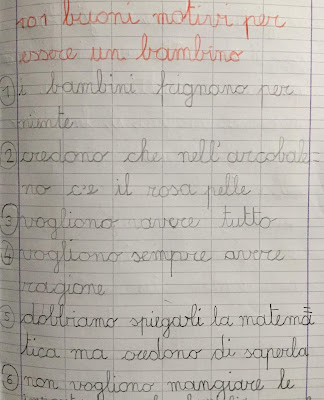 101 buoni motivi per
essere un bambino
1 i bambini frignano per
niente
2 credono che nell'arcobale=
no c'e il rosa pelle
3 vogliono avere tutto
4 vogliono sempre avere
ragione
5 dobbiamo spiegarli la matema=
tica ma credono di saperla
6 non vogliono mangiare le